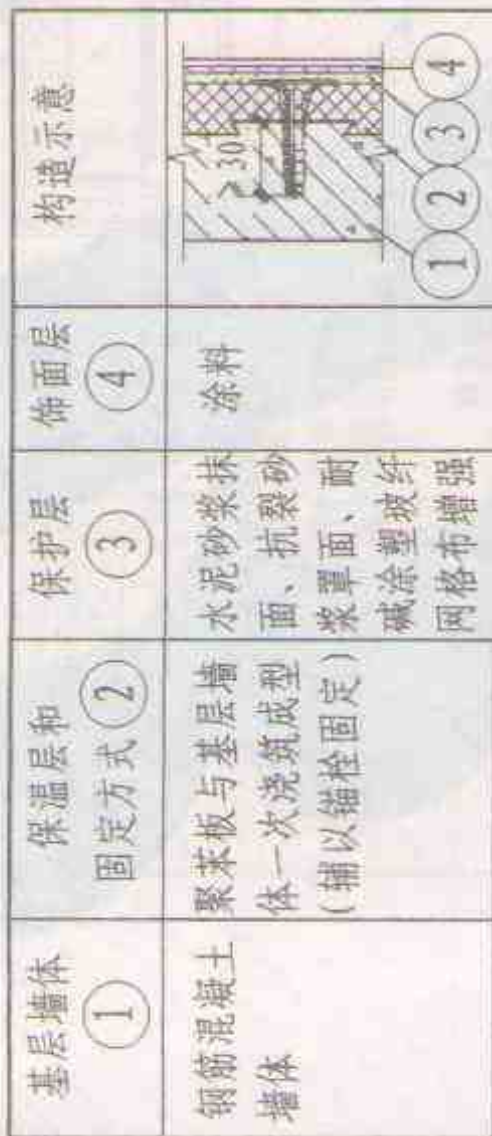 基层墙体
①
保温层和
固定方式②
保护层
③
饰面层
④
构造示意
钢筋混凝土
墙体
聚苯板与基层墙
体一次浇筑成型
(辅以锚栓固定)
水泥砂浆抹
面、抗裂砂
浆罩面、耐
碱涂塑玻纤
网格布增强
涂料
≥30
①
②
③
④